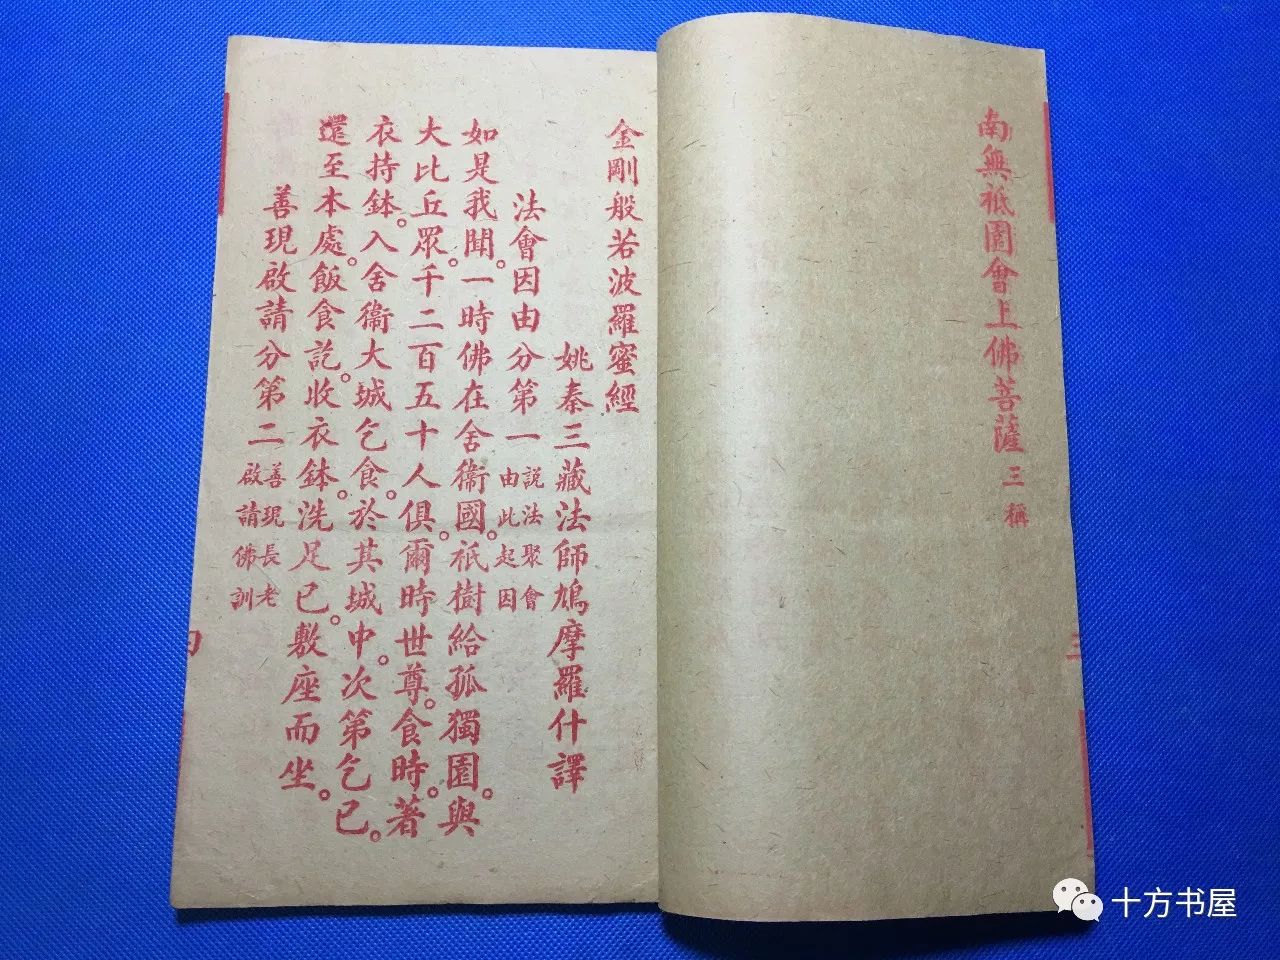 南無祇園會上佛菩薩 三稱
金剛般若波羅蜜經
姚秦三藏法師鳩摩羅什譯
法會因由分第一 說法聚會 由此起因
如是我聞。一時佛在舍衞國。祇樹給孤獨園。與
大比丘眾。千二百五十人俱。爾時世尊。食時。著
衣持鉢。入舍衞大城乞食。於其城中。次第乞已。
還至本處。飯食訖。收衣鉢。洗足已。敷座而坐。
善現啟請分第二 善現長老 啟請佛訓
十方书屋